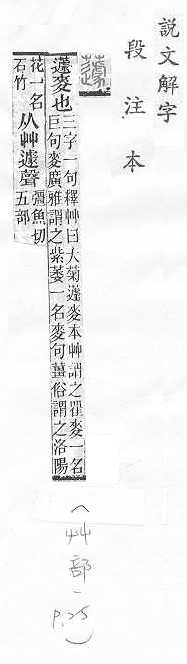 説文解字
段注本
蘧
蘧麥也三字一句釋艸曰大菊蘧麥本艸謂之瞿麥一名
巨句麥廣雅謂之紫葳一名麥句薑俗謂之洛陽
花一名
石竹
从艸遽聲
彊魚切
五部
(艸部-p.25)